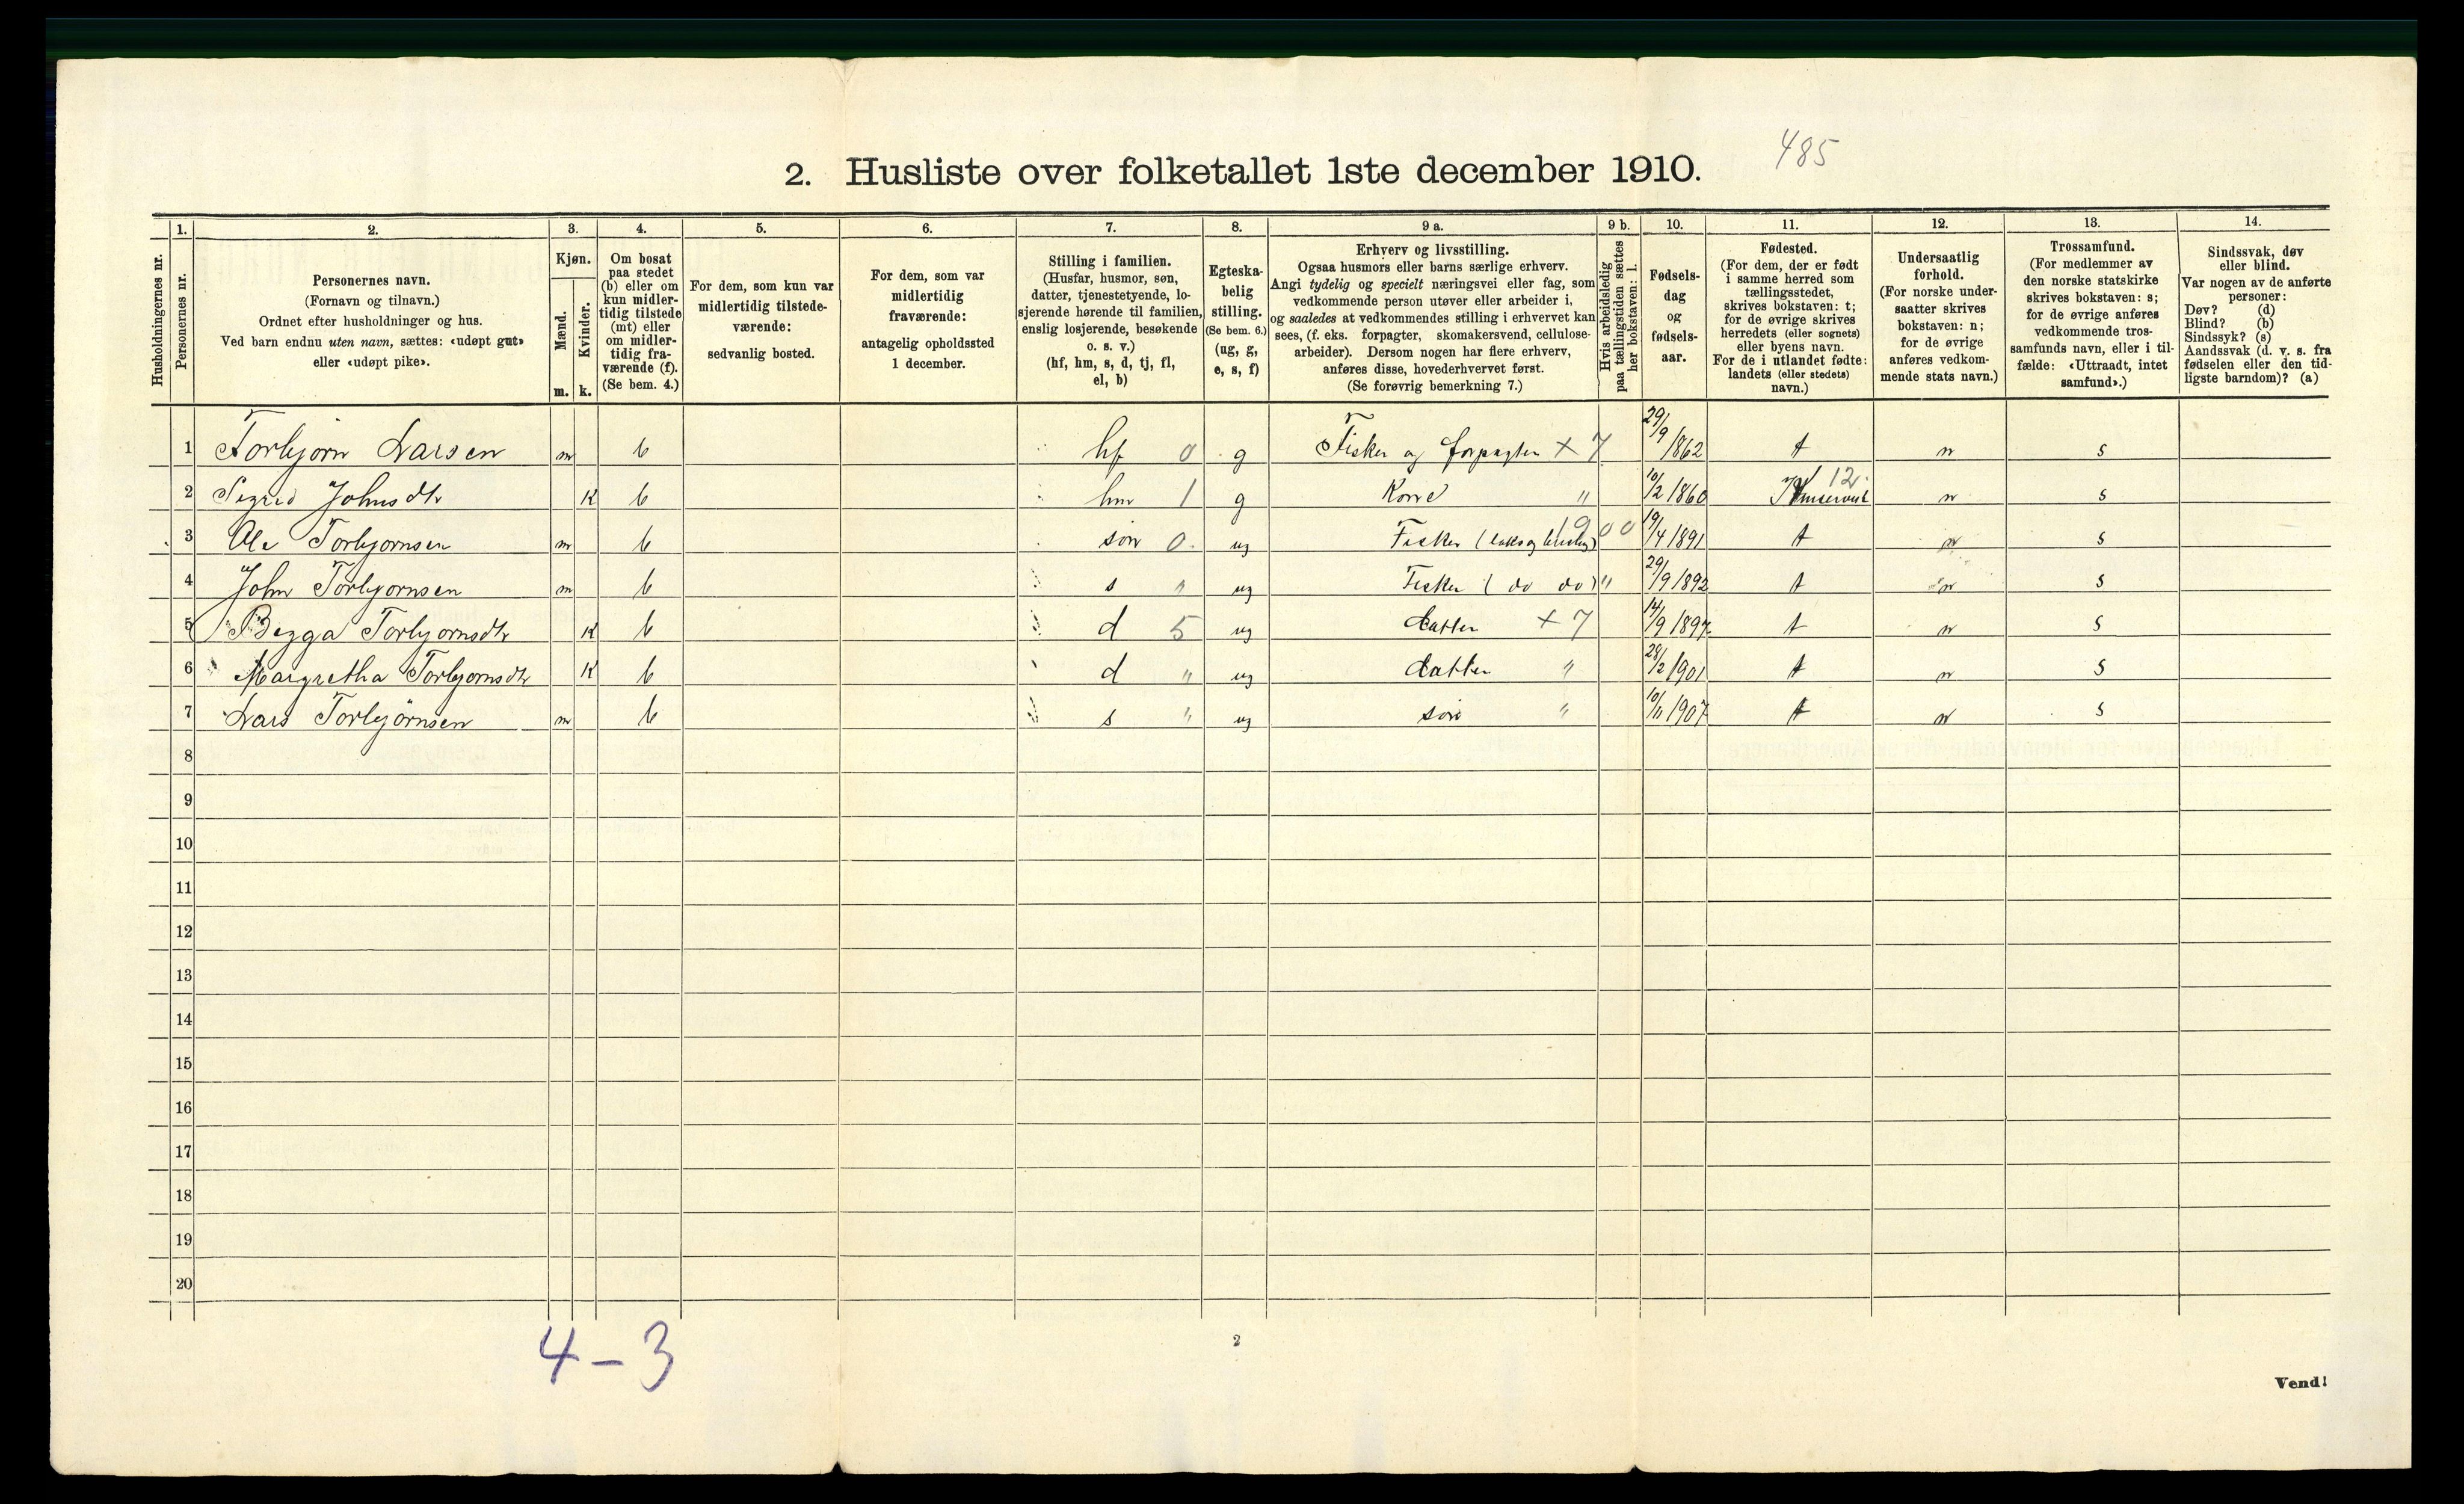 485
2. Husliste over folketallet 1ste december 1910.
Husholdningernes nr.
1.
Personernes nr.
2.
Personernes navn.
(Fornavn og tilnavn.)
Ordnet efter husholdninger og hus.
Ved barn endnu uten navn, sættes: «udøpt gut»
eller «udøpt pike».
3.
Kjøn.
Mænd.
m.
Kvinder.
k.
4.
Om bosat
paa stedet
(b) eller om
kun midler-
tidig tilstede
(mt) eller
om midler-
tidig fra-
værende (f).
(Se bem. 4.)
5.
For dem, som kun var
midlertidig tilstede-
værende:
sedvanlig bosted.
6.
For dem, som var
midlertidig
fraværende:
antagelig opholdssted
1 december.
7.
Stilling i familien.
(Husfar, husmor, søn,
datter, tjenestetyende, lo-
sjerende hørende til familien,
enslig losjerende, besøkende
o. s. v.)
(hf, hm, s, d, tj, fl,
el, b)
8.
Egteska-
belig
stilling.
(Se bem. 6.)
(ug, g,
e, s, f)
9 a.
Erhverv og livsstilling.
Ogsaa husmors eller barns særlige erhverv.
Angi tydelig og specielt næringsvei eller fag, som
vedkommende person utøver eller arbeider i,
og saaledes at vedkommendes stilling i erhvervet kan
sees, (f. eks. forpagter, skomakersvend, cellulose-
arbeider). Dersom nogen har flere erhverv,
anføres disse, hovederhvervet først.
(Se forøvrig bemerkning 7.)
9 b.
Hvis arbeidsledig
paa tællingstiden sættes
her bokstaven: l.
10.
Fødsels-
dag
og
fødsels-
aar.
11.
Fødested.
(For dem, der er født
i samme herred som
tællingsstedet,
skrives bokstaven: t;
for de øvrige skrives
herredets (eller sognets)
eller byens navn.
For de i utlandet fødte:
landets (eller stedets)
navn.)
12.
Undersaatlig
forhold.
(For norske under-
saatter skrives
bokstaven: n;
for de øvrige
anføres vedkom-
mende stats navn.)
13.
Trossamfund.
(For medlemmer av
den norske statskirke
skrives bokstaven: s;
for de øvrige anføres
vedkommende tros-
samfunds navn, eller i til-
fælde: «Uttraadt, intet
samfund».)
14.
Sindssvak, døv
eller blind.
Var nogen av de anførte
personer:
Døv? (d)
Blind? (b)
Sindssyk? (s)
Aandssvak (d. v. s. fra
fødselen eller den tid-
ligste barndom)? (a)
1 Torbjørn Larsen m b hf 0 g Fisker og forpagter × 7 29/9 1862 t n s
2 Sigrid Johnsdtr k b hm 1 g Kone " 10/2 1860 12 n s
3 Ole Torbjornsen m b søn 0 ug Fisker ( 19/4 1891 t n s
4 John Torbjornsen m b s " ug Fisker ( do do ) " 29/9 1892 t n s
5 Torbjornsdtr k b d 5 ug datter × 7 14/9 1897 t n s
6 Margretha Torbjornsdtr k b d " ug datter " 28/2 1901 t n s
7 Lars Torbjörnsen m b s " ug søn " 10/11 1907 t n s
8
9
10
11
12
13
14
15
16
17
18
19
20
4 – 3
2
Vend!